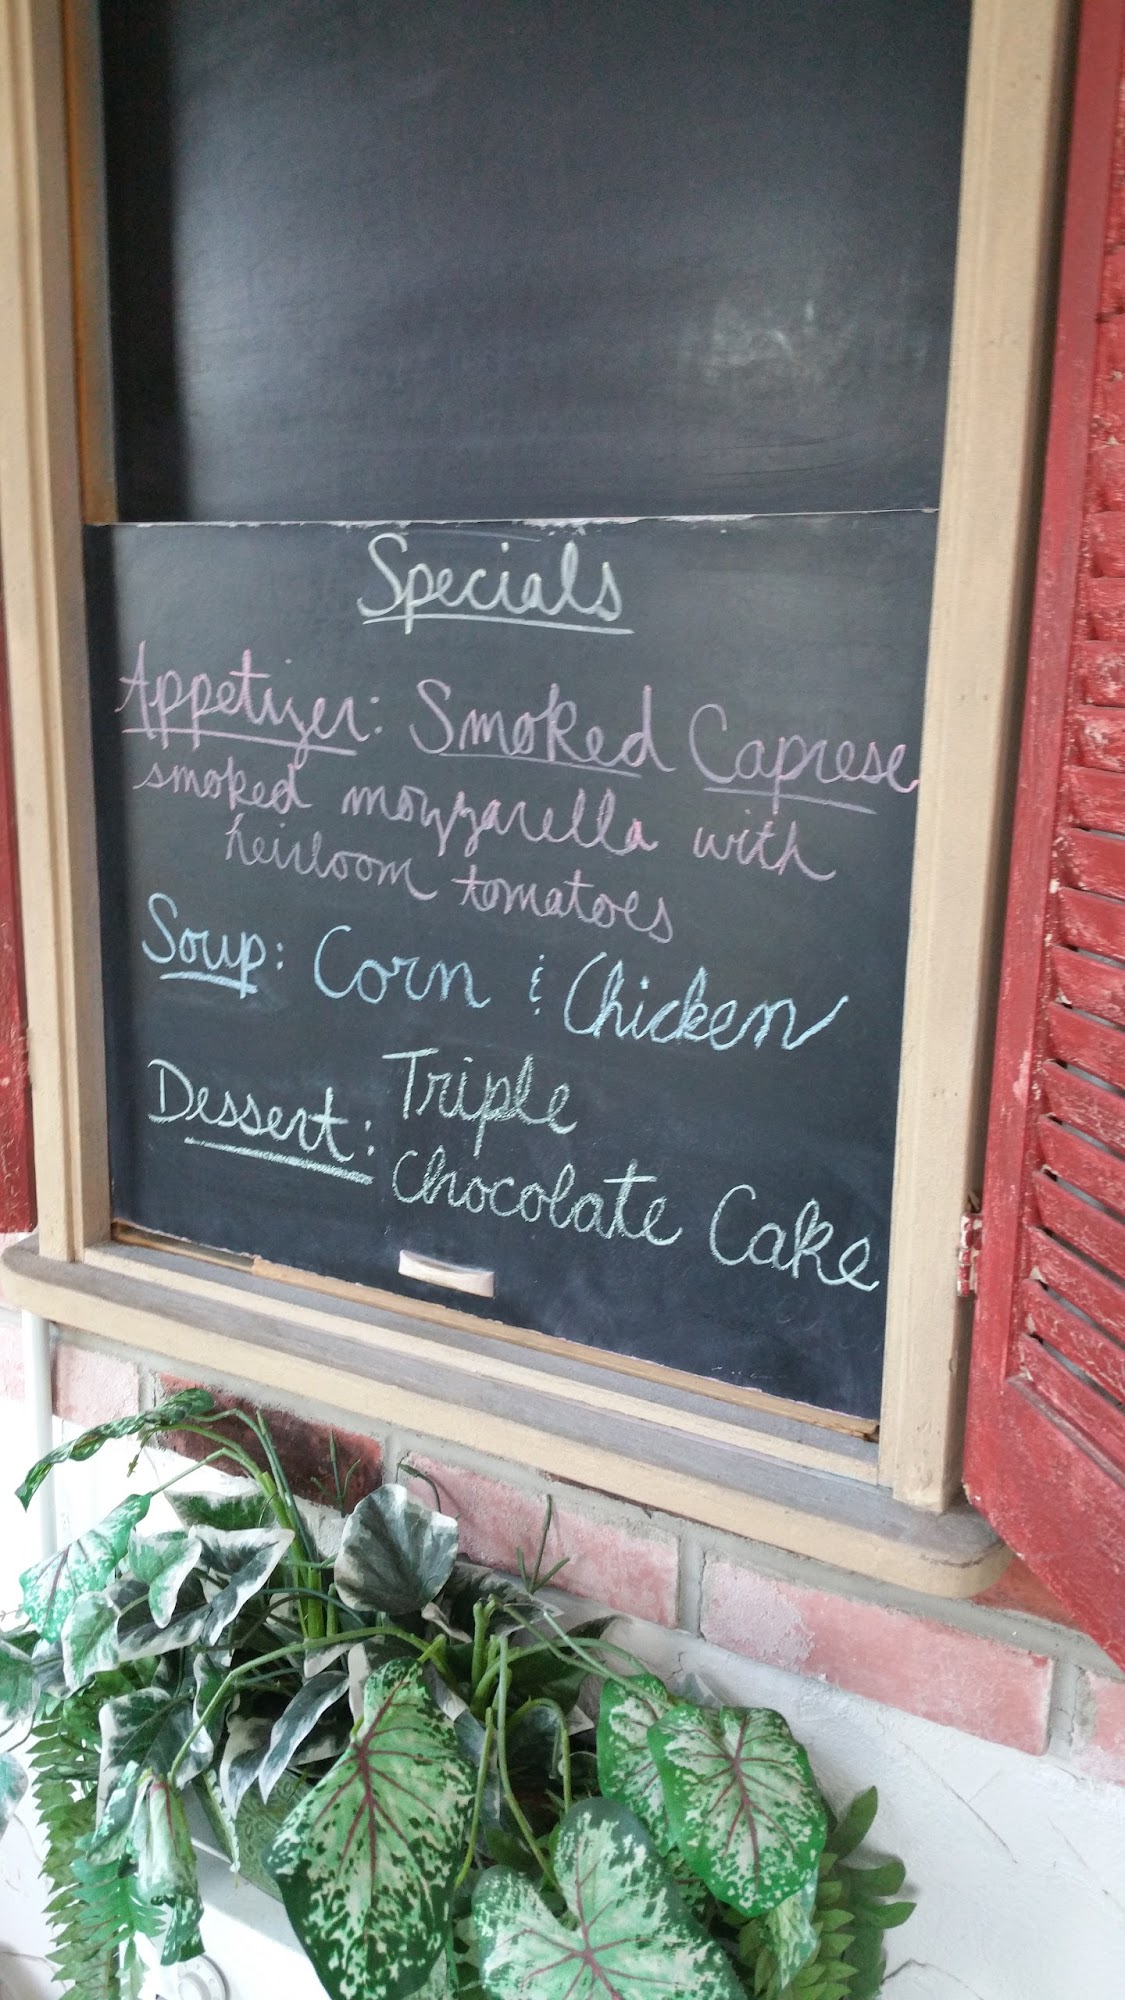 Specials
Appetizer: Smoked Caprese
smoked mozzarella with
heirloom tomatoes
Soup: Corn & Chicken
Dessert: Triple
Chocolate Cake